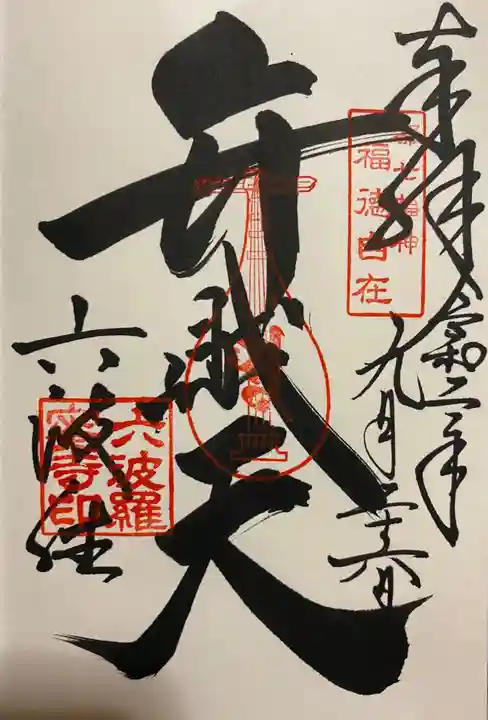 奉拝
令和二年
九月二十六日
都七福神
福徳自在
弁財天
六波羅
六波羅
蜜寺印